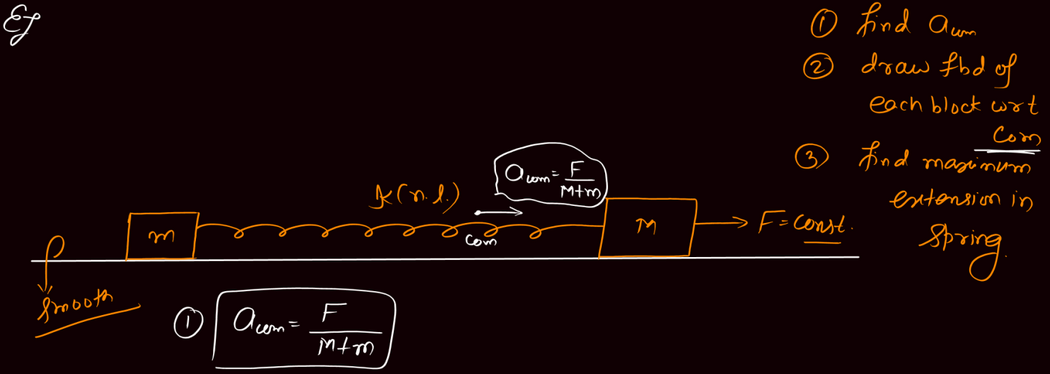 Eg
① find a_com
② draw fbd of
each block wrt
com
③ find maximum
extension in
spring.
a_com = F/(M+m)
k(n.l.)
m
com
M
F = const.
smooth
① a_com = F/(M+m)